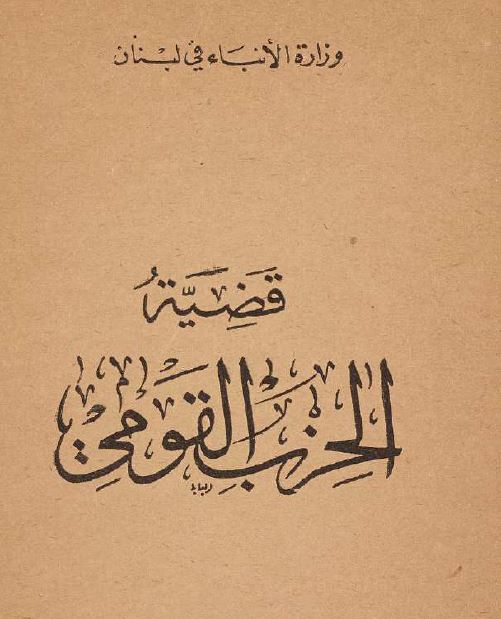 وزارة الأنباء في لبنان
قَضِيَّةُ
الحِزبِ القَومي